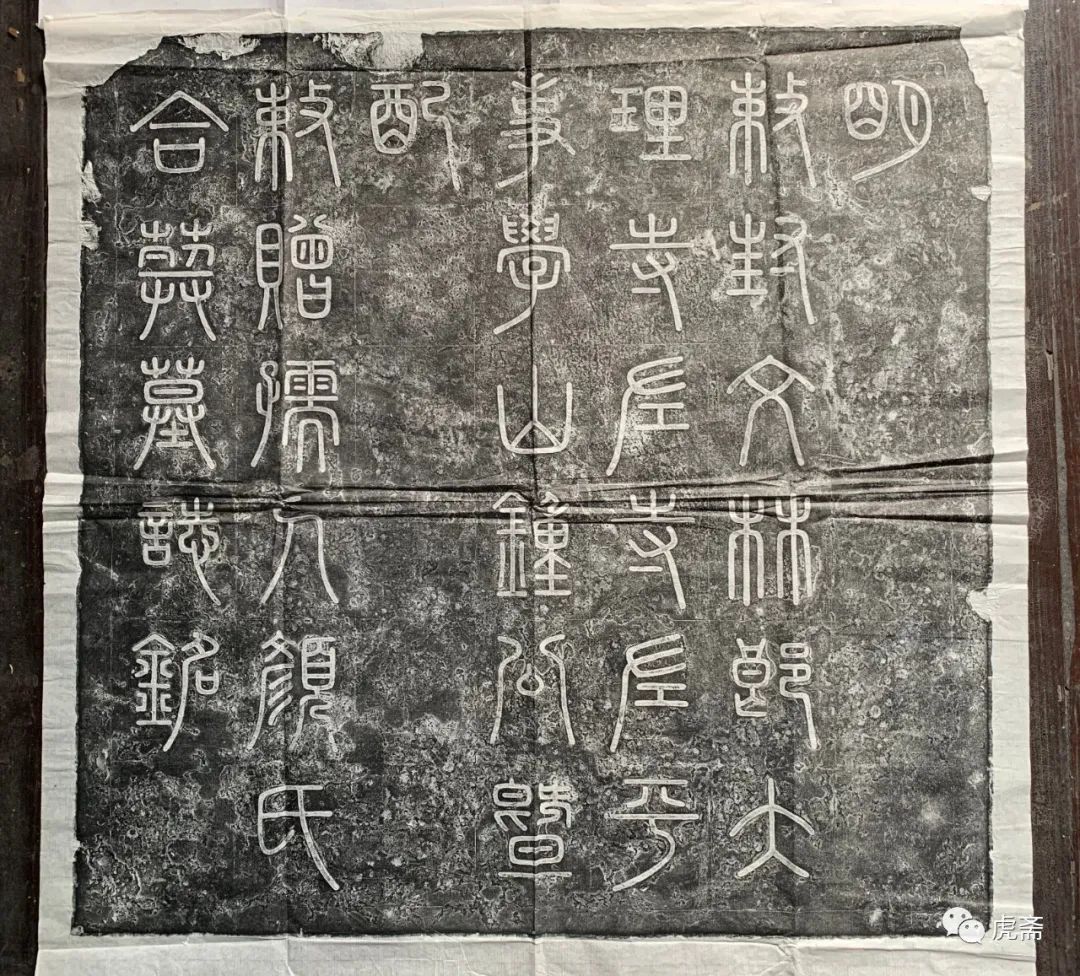 明
敕封文林郎大
理寺左寺左平
事學山鐘公暨
配
敕贈孺人顏氏
合葬墓誌銘
虎斋